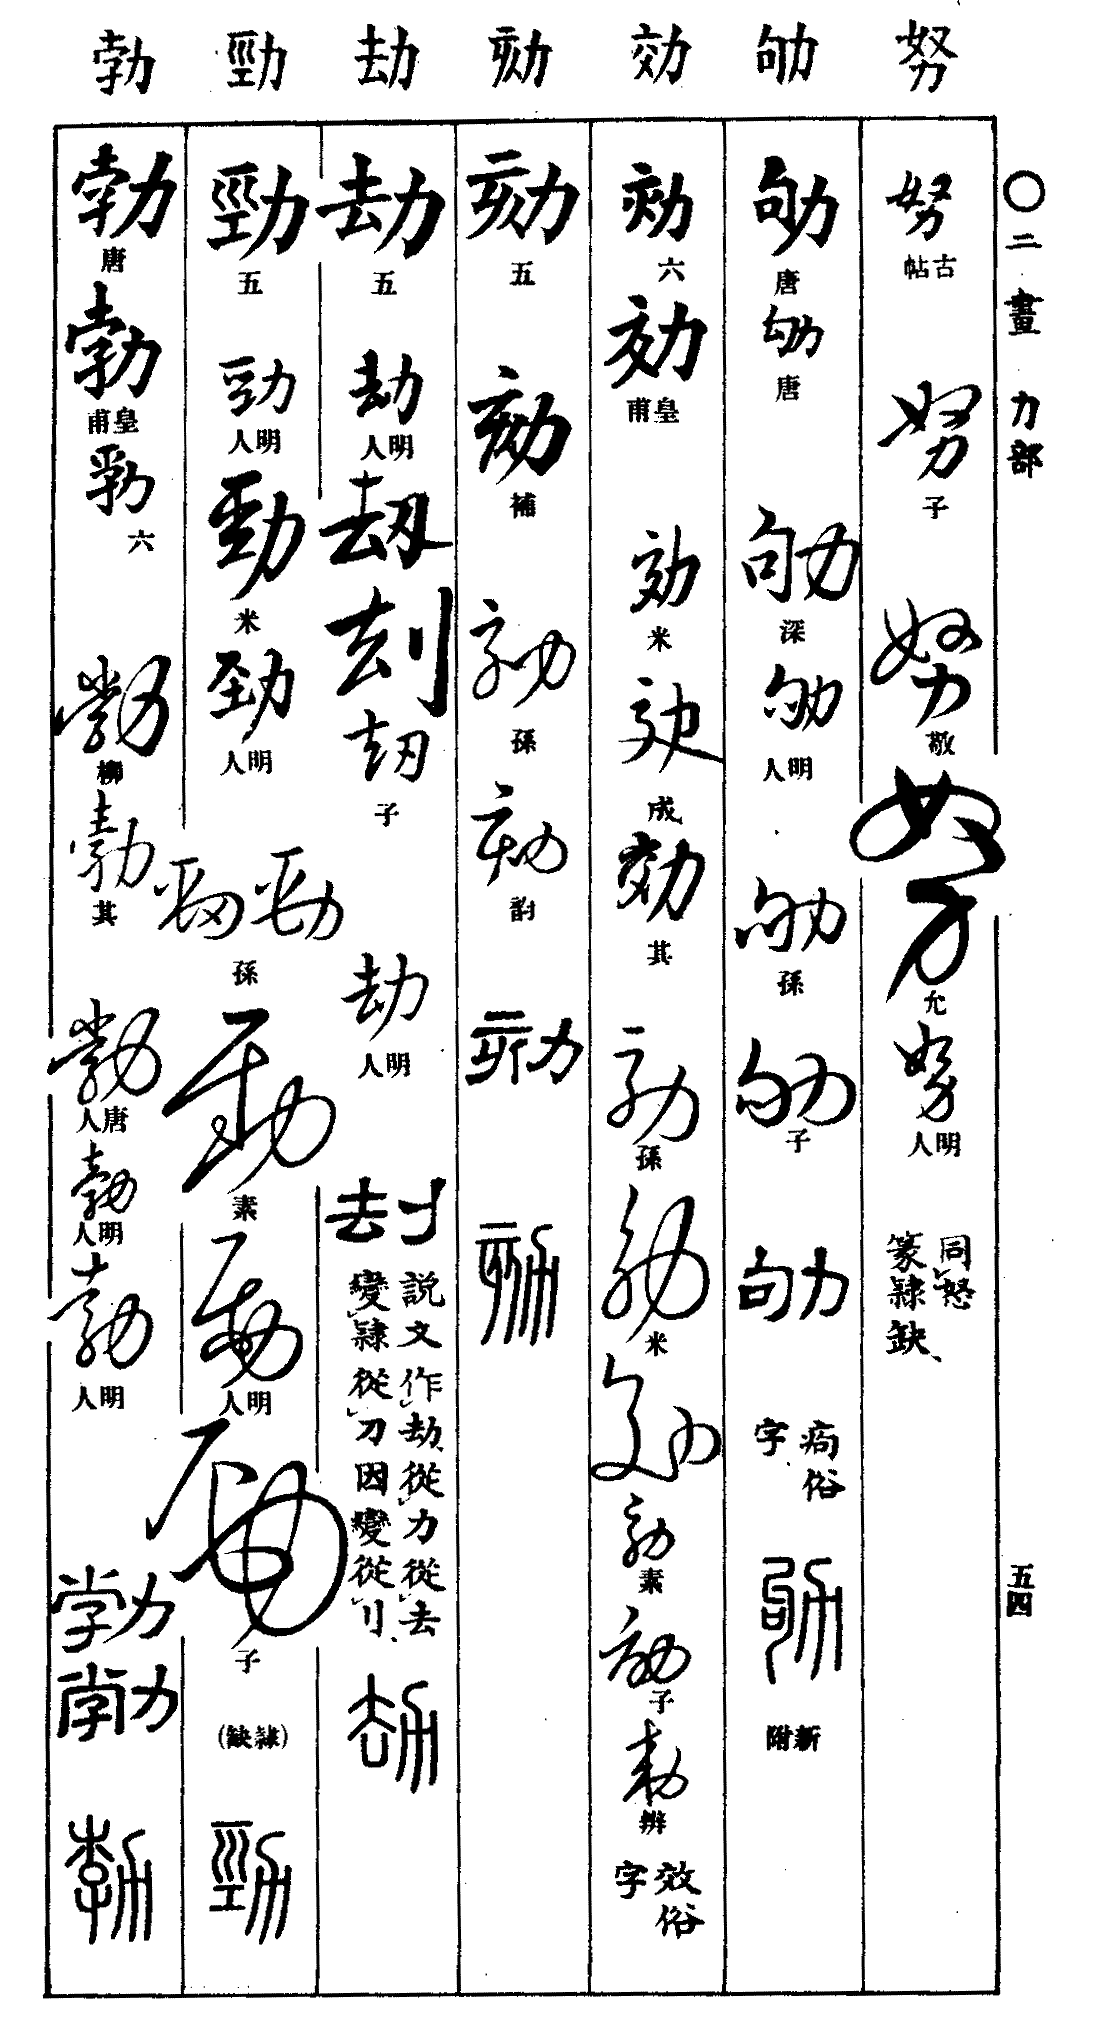 努 劬 効 劾 劫 勁 勃
〇二畫 力部 五四
努 古帖 努 子 努 敬 努 允 努 明人 同怒 篆隷缺、
劬 唐 劬 唐 劬 深 劬 明人 劬 孫 劬 子 劬 痀俗字 劬 新附
効 六 効 皇甫 効 米 効 成 効 其 効 孫 効 米 効 効 素 効 子 効 辨 效俗字
劾 五 劾 補 劾 孫 劾 韵 劾 劾
劫 五 劫 明人 刼 刦 刧 子 劫 明人 刦 說文作劫、從力從去 變隷從刀因變從刂、 劫
勁 五 勁 明人 勁 米 勁 明人 勁 勁 孫 勁 素 勁 明人 勁 子 (隷缺) 勁
勃 唐 勃 皇甫 勃 六 勃 柳 勃 其 勃 唐人 勃 明人 勃 明人 勃 勃 勃